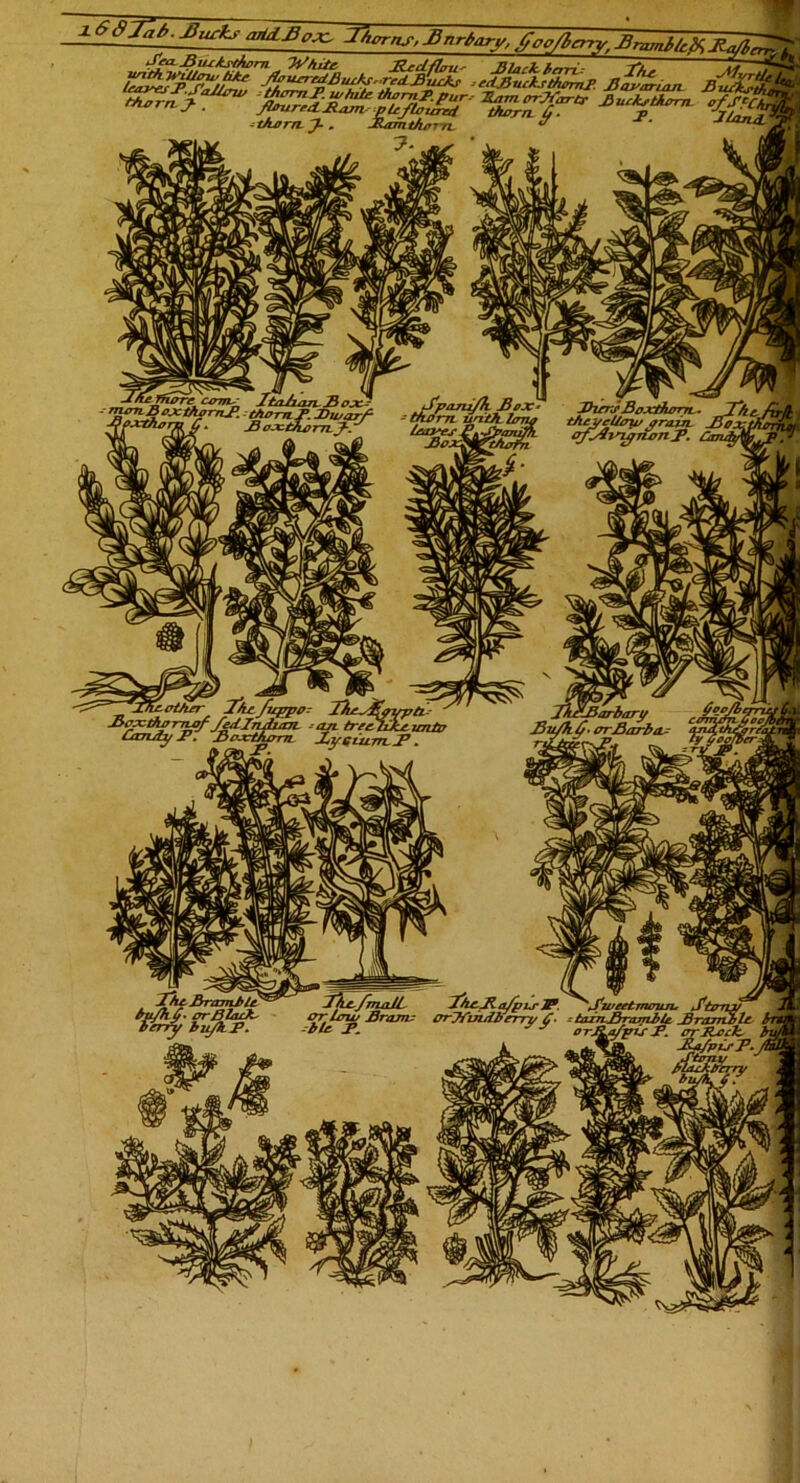 168 Tab. Bucks and Box Thorns, Bnrbary, Gooſberry, Bramble & Raſberry
Sea Bucksthorn
with Willow like
leaves P. Sallow
thorn J.
White
flouered Bucks-
-thorn P. white
floured Ram-
-thorn J.
Red flou-
-red Bucks
thorn P. pur-
-ple floured
Ramthorn
Black berri-
-ed Bucksthorn P.
Ram or Harts
thorn G.
The
Bavarian
Bucksthorn
P.
Myrtle lea
Bucksthorn
of St. Chriſto
Iland P.
The more com-
-mon Boxthorn P.
Boxthorn G.
Italian Box-
-thorn P. Dwarf
Boxthorn J.
Spaniſh Box-
-thorn with long
leaves P. Spaniſh
Boxthorn
Divers Boxthorn
the yellow grain
of Avignon P.
The firſt
Boxthorn of
Candy P.
The other
Boxthorn of
Candy P.
The ſuppo-
ſed Indian
Boxthorn
P.
The Ægypti-
-an tree like unto
Lycium P.
The Barbary
Buſh G. or Barba-
-ry
Gooſberries G.
common Gooſber
and the great
The Bramble
buſh G. or Black
berry buſh P.
The ſmall
or Low Bram-
-ble P.
The Raſpis P.
or Hindberry G.
Sweet moun-
-tain Bramble
or Raſpis P.
Stony
Bramble
or Rock
Raſpis P.
Stony
blackberry
buſh G.